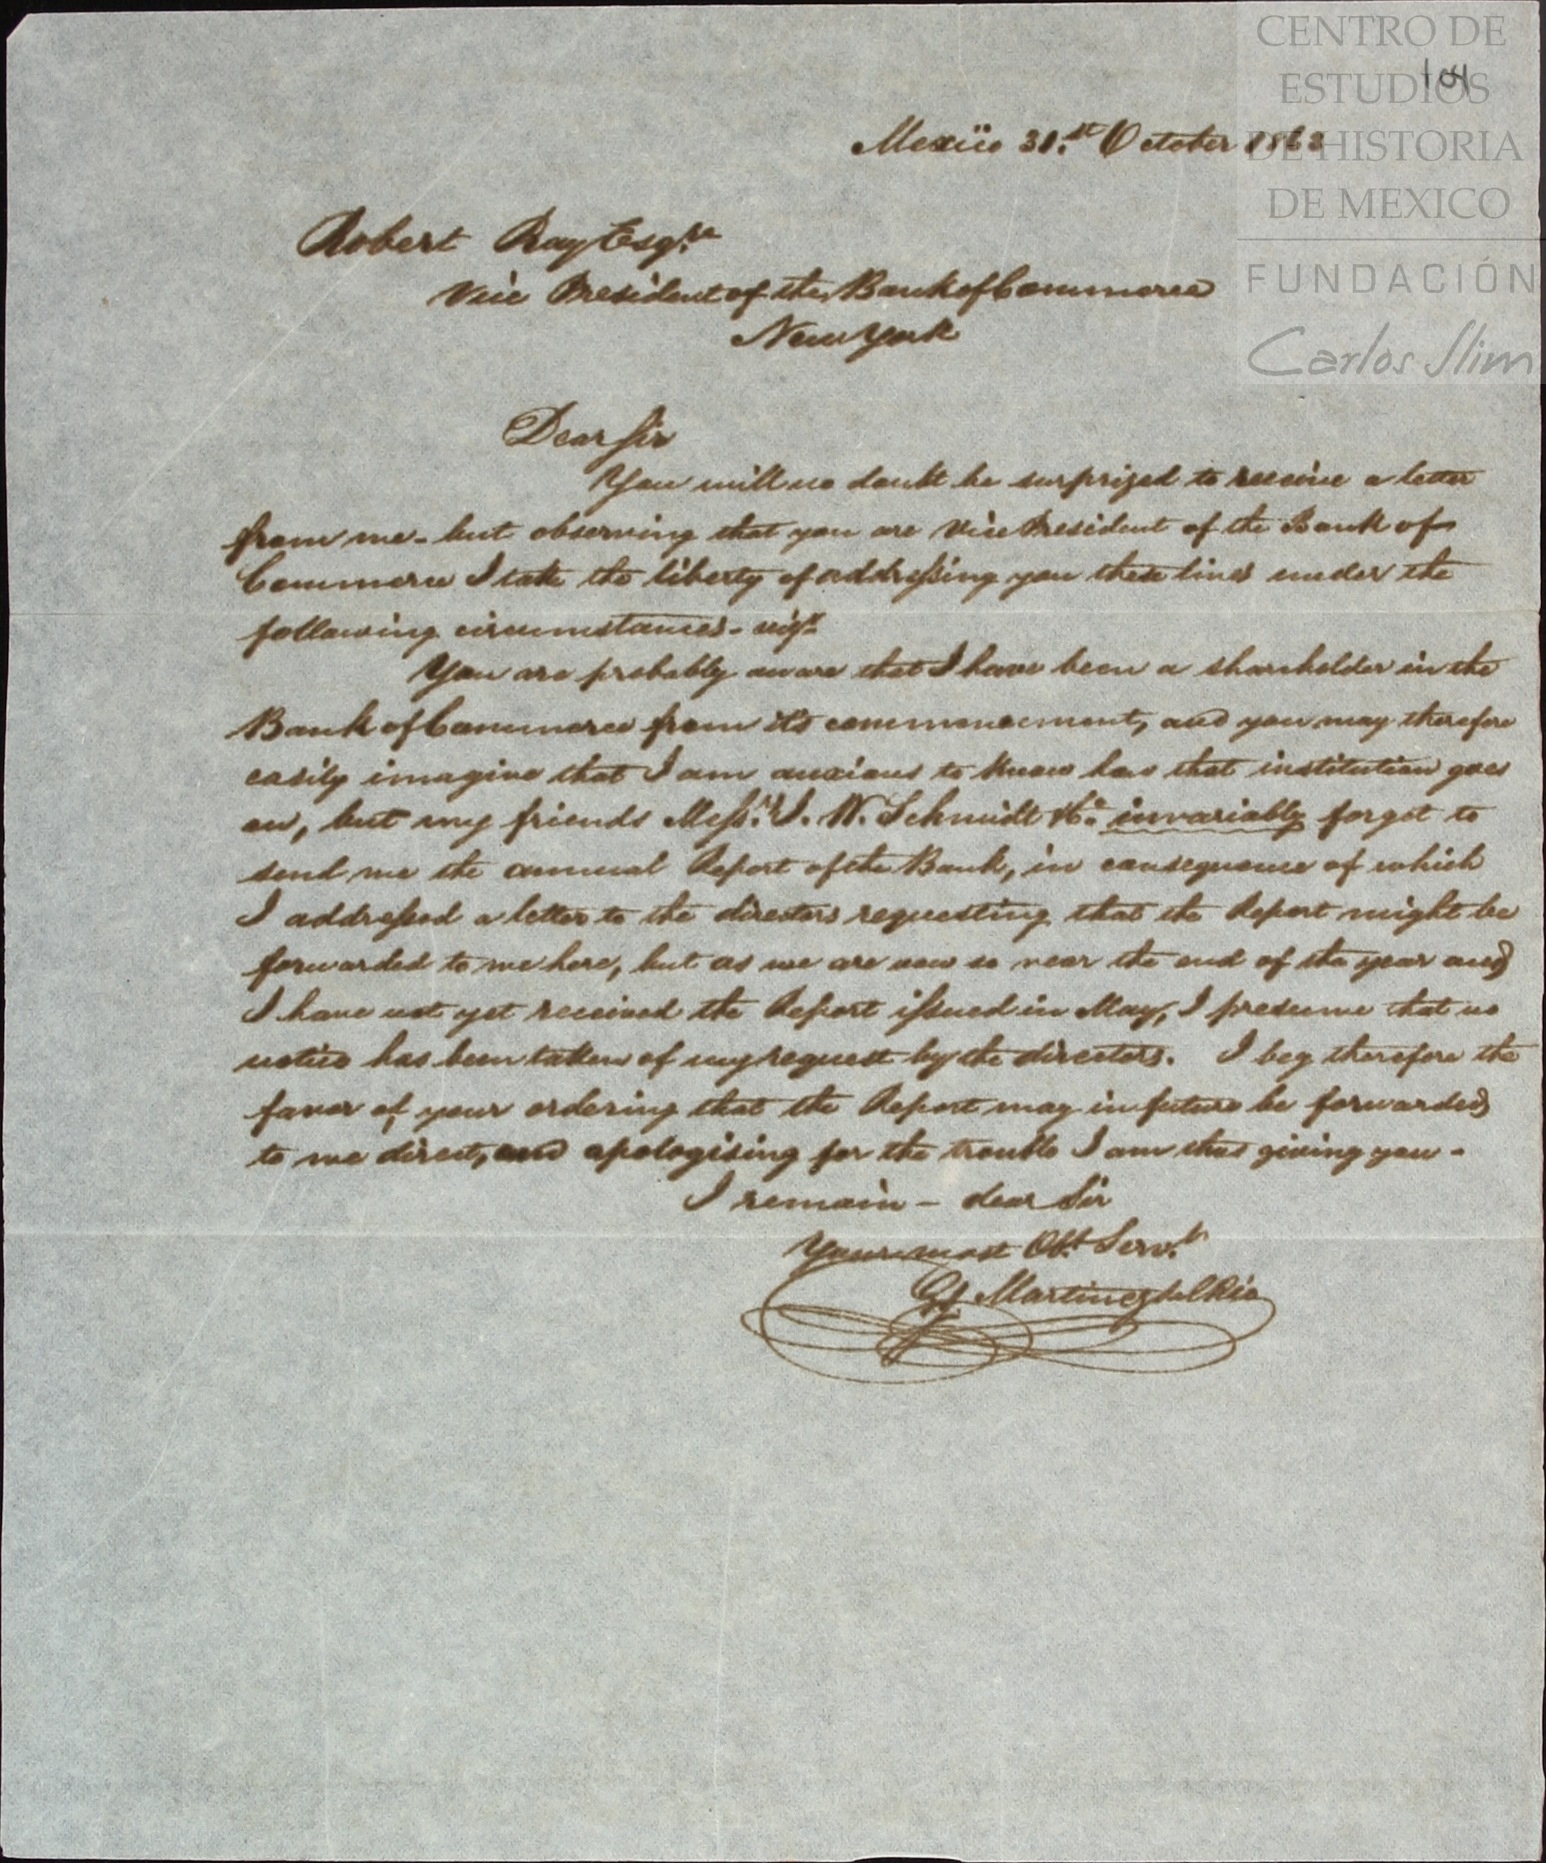 CENTRO DE
ESTUDIOS
DE HISTORIA
DE MEXICO
FUNDACIÓN
Carlos Slim
104
Mexico 31.st October 1863
Robert Ray Esq.re
Vice President of the Bank of Commerce
New York
Dear Sir
You will no doubt be surprized to receive a letter
from me - but observing that you are Vice President of the Bank of
Commerce I take the liberty of addressing you these lines under the
following circumstances - vizt.
You are probably aware that I have been a shareholder in the
Bank of Commerce from it's commencement, and you may therefore
easily imagine that I am anxious to know how that institution goes
on, but my friends Mess.rs J. W. Schmidt &Co. invariably forget to
send me the annual Report of the Bank, in consequence of which
I addressed a letter to the directors requesting that the Report might be
forwarded to me here, but as we are now so near the end of the year and
I have not yet received the Report issued in May, I presume that no
notice has been taken of my request by the directors. I beg therefore the
favor of your ordering that the Report may in future be forwarded
to me direct, and apologising for the trouble I am thus giving you -
I remain - dear Sir
Your most Obt. Serv.t
Martinez del Rio